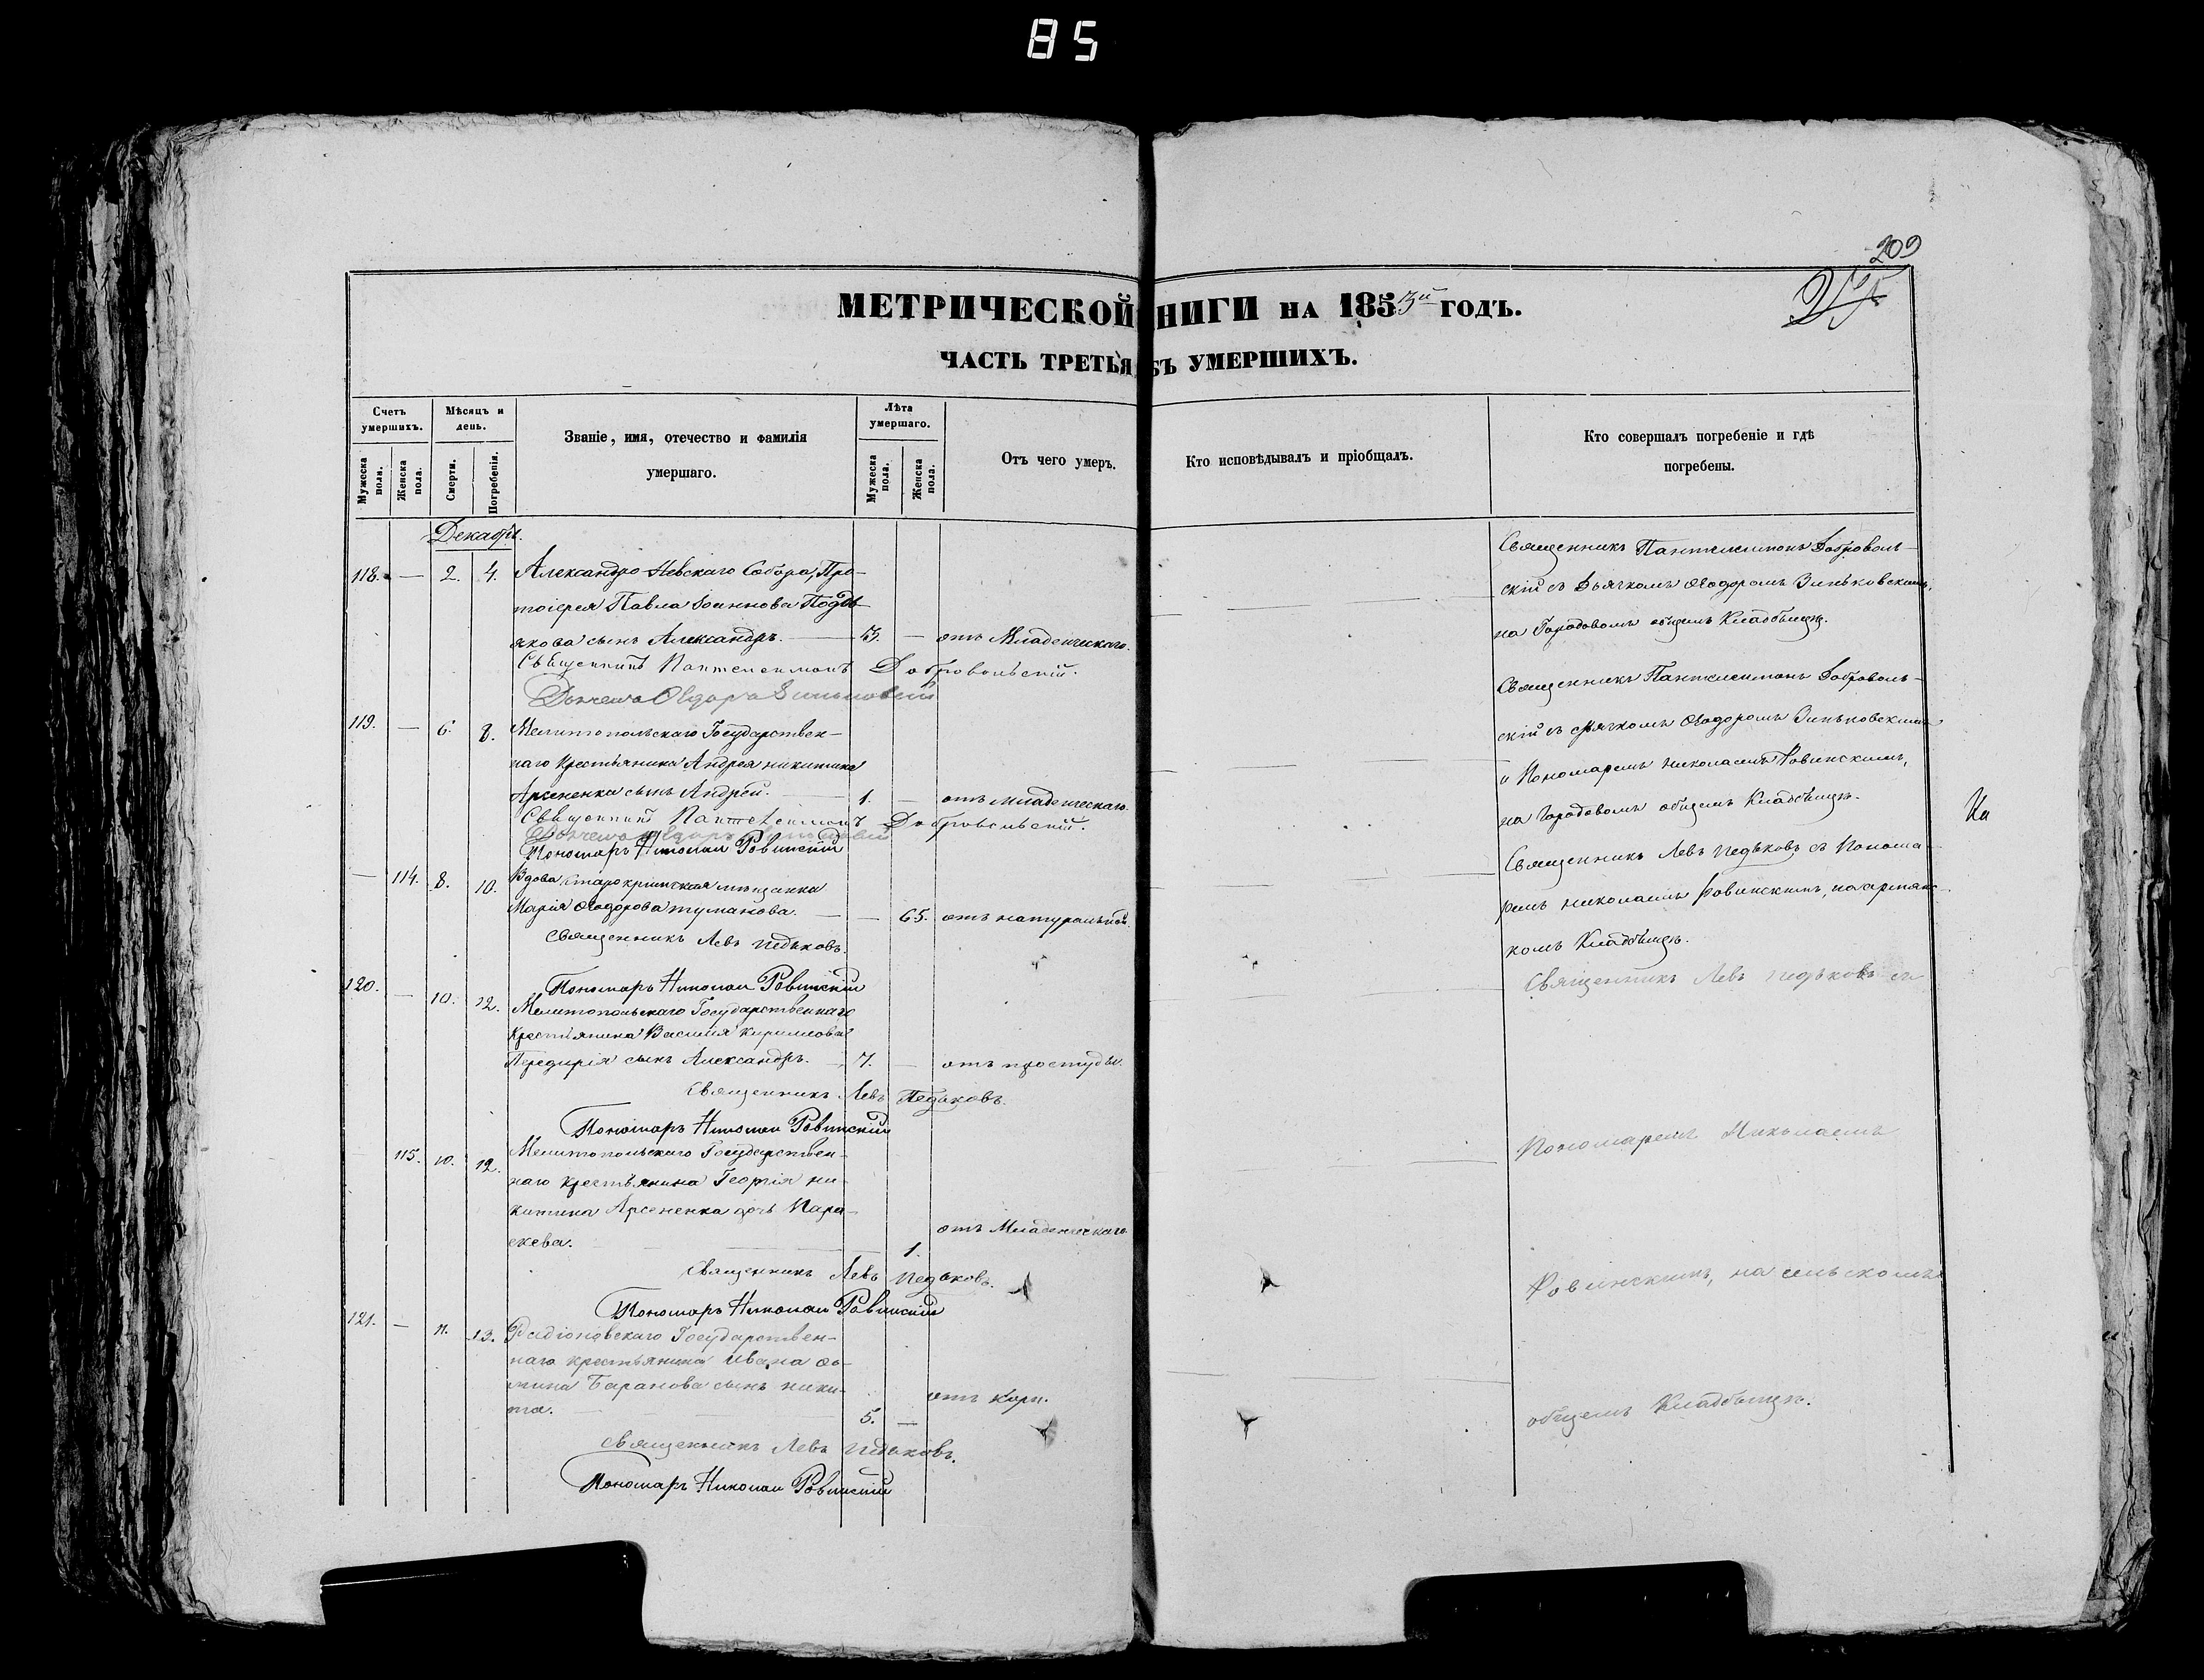 85
209
МЕТРИЧЕСКОЙ КНИГИ НА 1853й ГОДЪ.
ЧАСТЬ ТРЕТЬЯ ОБЪ УМЕРШИХЪ.
Счетъ умершихъ.
Мужеска пола.
Женска пола.
Мѣсяцъ и день.
Смерти.
Погребенія.
Званіе, имя, отечество и фамилія
умершаго.
Лѣта умершаго.
Мужеска пола.
Женска пола.
Отъ чего умеръ.
Кто исповѣдывалъ и пріобщалъ.
Кто совершалъ погребеніе и гдѣ
погребены.
Декабрь.
118. — 2. 4. Александро-Невскаго Собора, Про-
тоіерея Павла Іоаннова
сынъ Александръ. — — отъ Младенческаго.
Священникъ Пантелеимонъ Добровольскій.
Священникъ Пантелеимонъ Доброволь-
скій съ Дьячкомъ Ѳеодоромъ Зиньковскимъ,
на Городовомъ общемъ Кладбищѣ.
119. — 6. 8. Мелитопольскаго Государствен-
наго Крестьянина Андрея Никитина
Арсененка сынъ Андрей. — 1. — отъ младенческаго.
Священникъ Пантелеимонъ Добровольскій.
Пономарь Николай Ровинскій
Священникъ Пантелеимонъ Доброволь-
скій съ Дьячкомъ Ѳеодоромъ Зиньковскимъ
и Пономаремъ Николаемъ Ровинскимъ,
на Городовомъ общемъ Кладбищѣ.
— 114. 8. 10. Вдова старокрымская мѣщанка
Марія Ѳеодорова Туманова. — — 65. отъ натуральной.
Священникъ Левъ Педьковъ.
Пономарь Николай Ровинскій
Священникъ Левъ Педьковъ съ Понома-
ремъ Николаемъ Ровинскимъ, на армянс-
комъ Кладбищѣ.
120. — 10. 12. Мелитопольскаго Государственнаго
Крестьянина Василія Кириллова
сынъ Александръ. — 7. — отъ простуды.
Священникъ Левъ Педьковъ.
Пономарь Николай Ровинскій
115. 10. 12. Мелитопольскаго Государствен-
наго крестьянина Георгія Ни-
китина Арсененка дочь Пара-
скева. — 1. отъ Младенческаго
Священникъ Левъ Педьковъ.
Пономарь Николай Ровинскій
121. — 11. 13. Радіоновскаго Государствен-
наго крестьянина Ивана Ѳо-
мина Баранова сынъ Ники-
та. — 5. — отъ кори.
Священникъ Левъ Педьковъ.
Пономарь Николай Ровинскій
Священникъ Левъ Педьковъ съ
Пономаремъ Николаемъ
Ровинскимъ, на сельскомъ
общемъ Кладбищѣ.